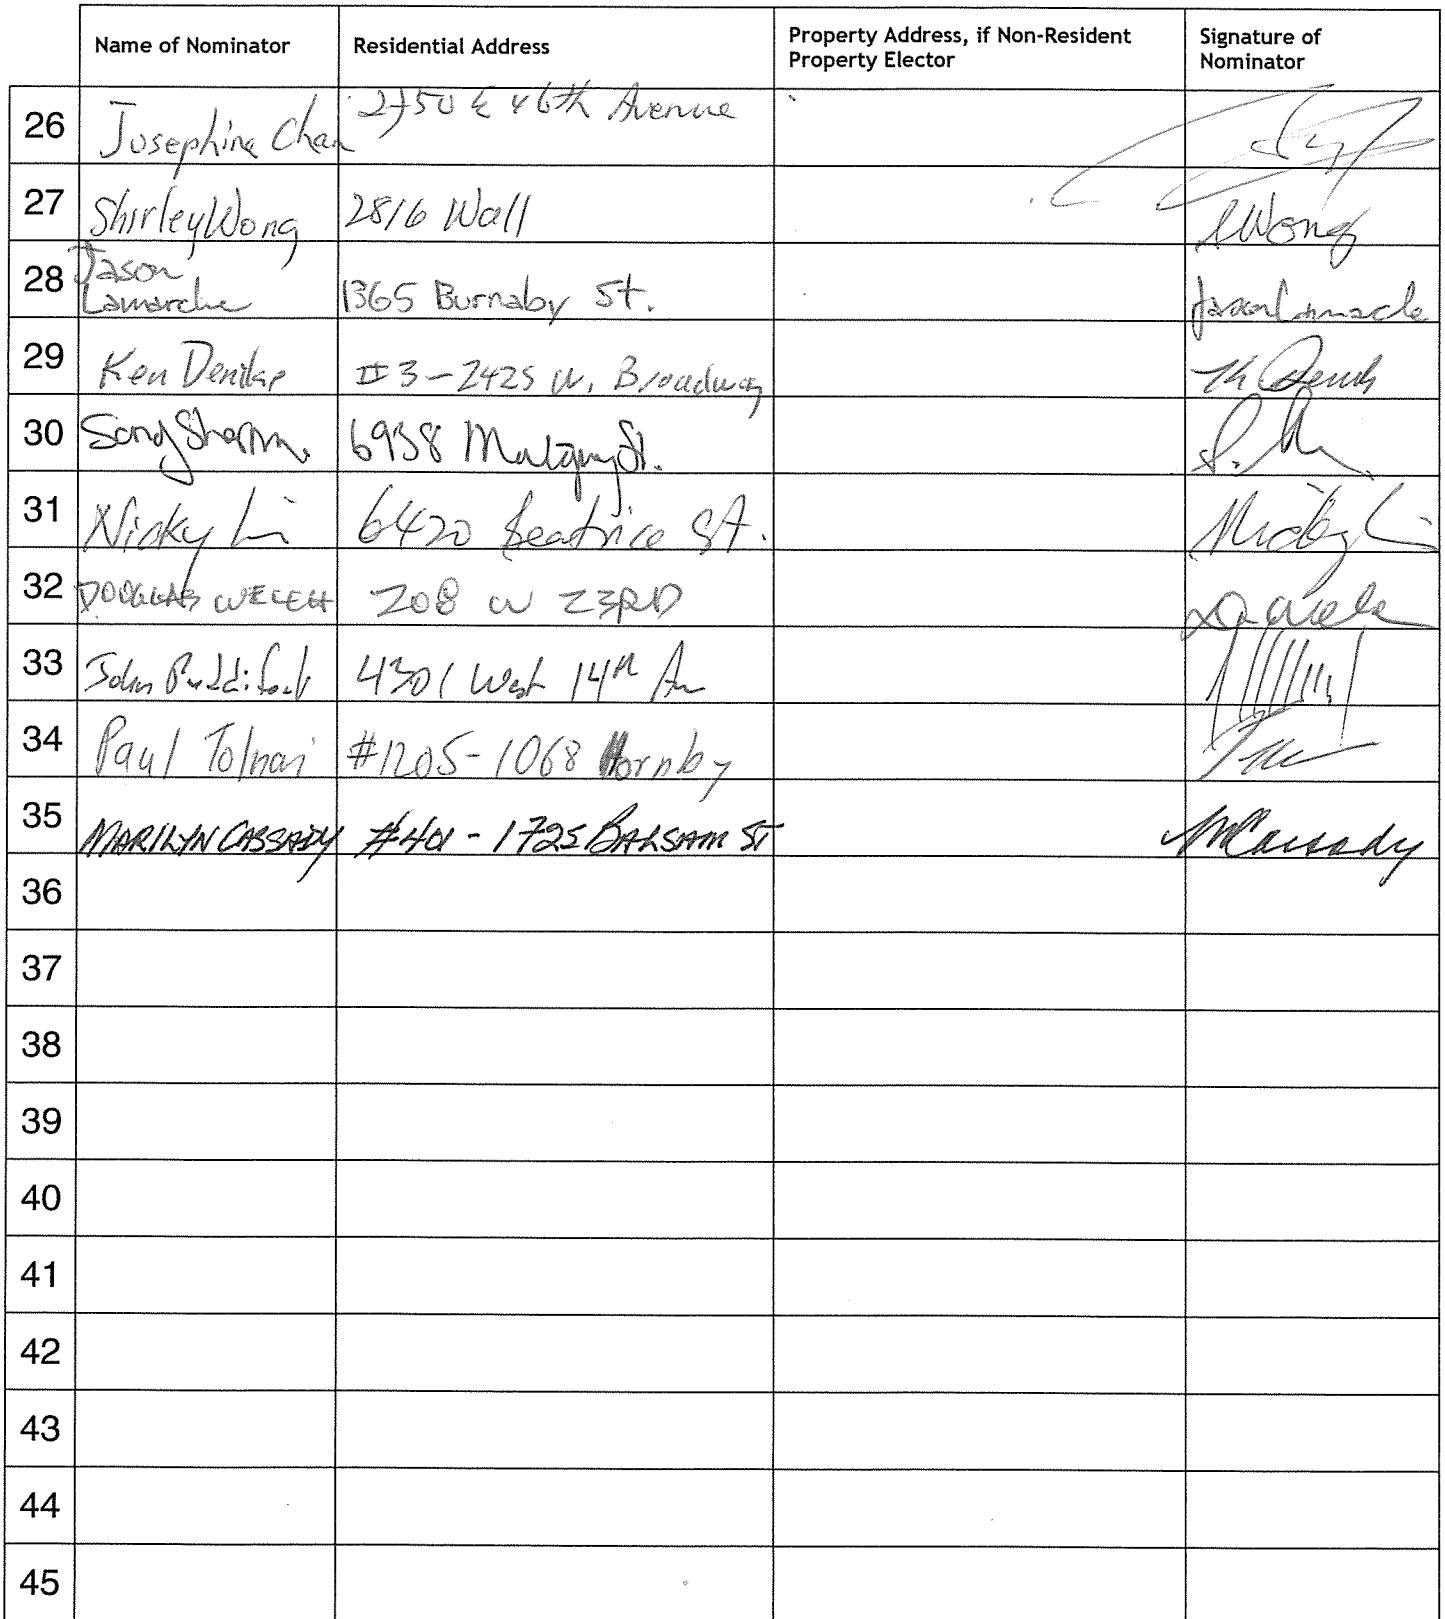 Name of Nominator Residential Address Property Address, if Non-Resident Property Elector Signature of Nominator
26 Josephine Chan 2750 E 46th Avenue
27 Shirley Wong 2816 Wall SWong
28 Jason Lamarche 1365 Burnaby St. Jason Lamarche
29 Ken Denike #3-2425 W. Broadway K Denike
30 Sharma. 6938 St.
31 Nicky Li 6420 Beatrice St. Nicky Li
32 DOUGLAS WELCH 208 W 23RD
33 John Puddifoot 4301 West 14th Av
34 Paul Tolnai #1205-1068 Hornby
35 MARILYN CASSADY #401-1725 BALSAM ST MCassady
36
37
38
39
40
41
42
43
44
45